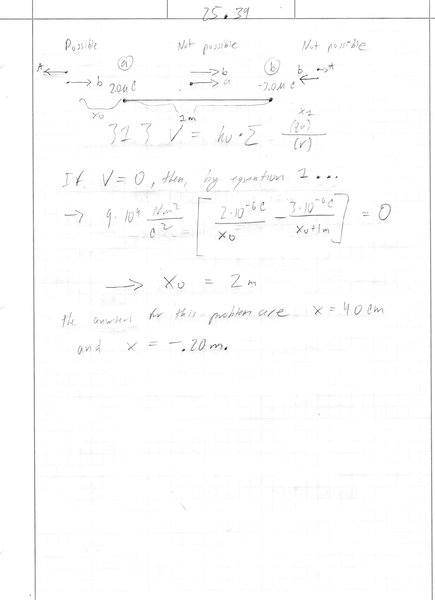 25.39
Possible Not possible Not possible
A b b a A
a b
2.0μC -3.0μC
x0 1m
V = k0 · Σ (q0) / (r)
If V = 0, then, by equation 1 ...
→ 9·10⁹ Nm²/C² [ 2·10⁻⁶C / x0 - 3·10⁻⁶C / x0+1m ] = 0
→ x0 = 2m
the answers for this problem are x = 40cm
and x = -.20m.